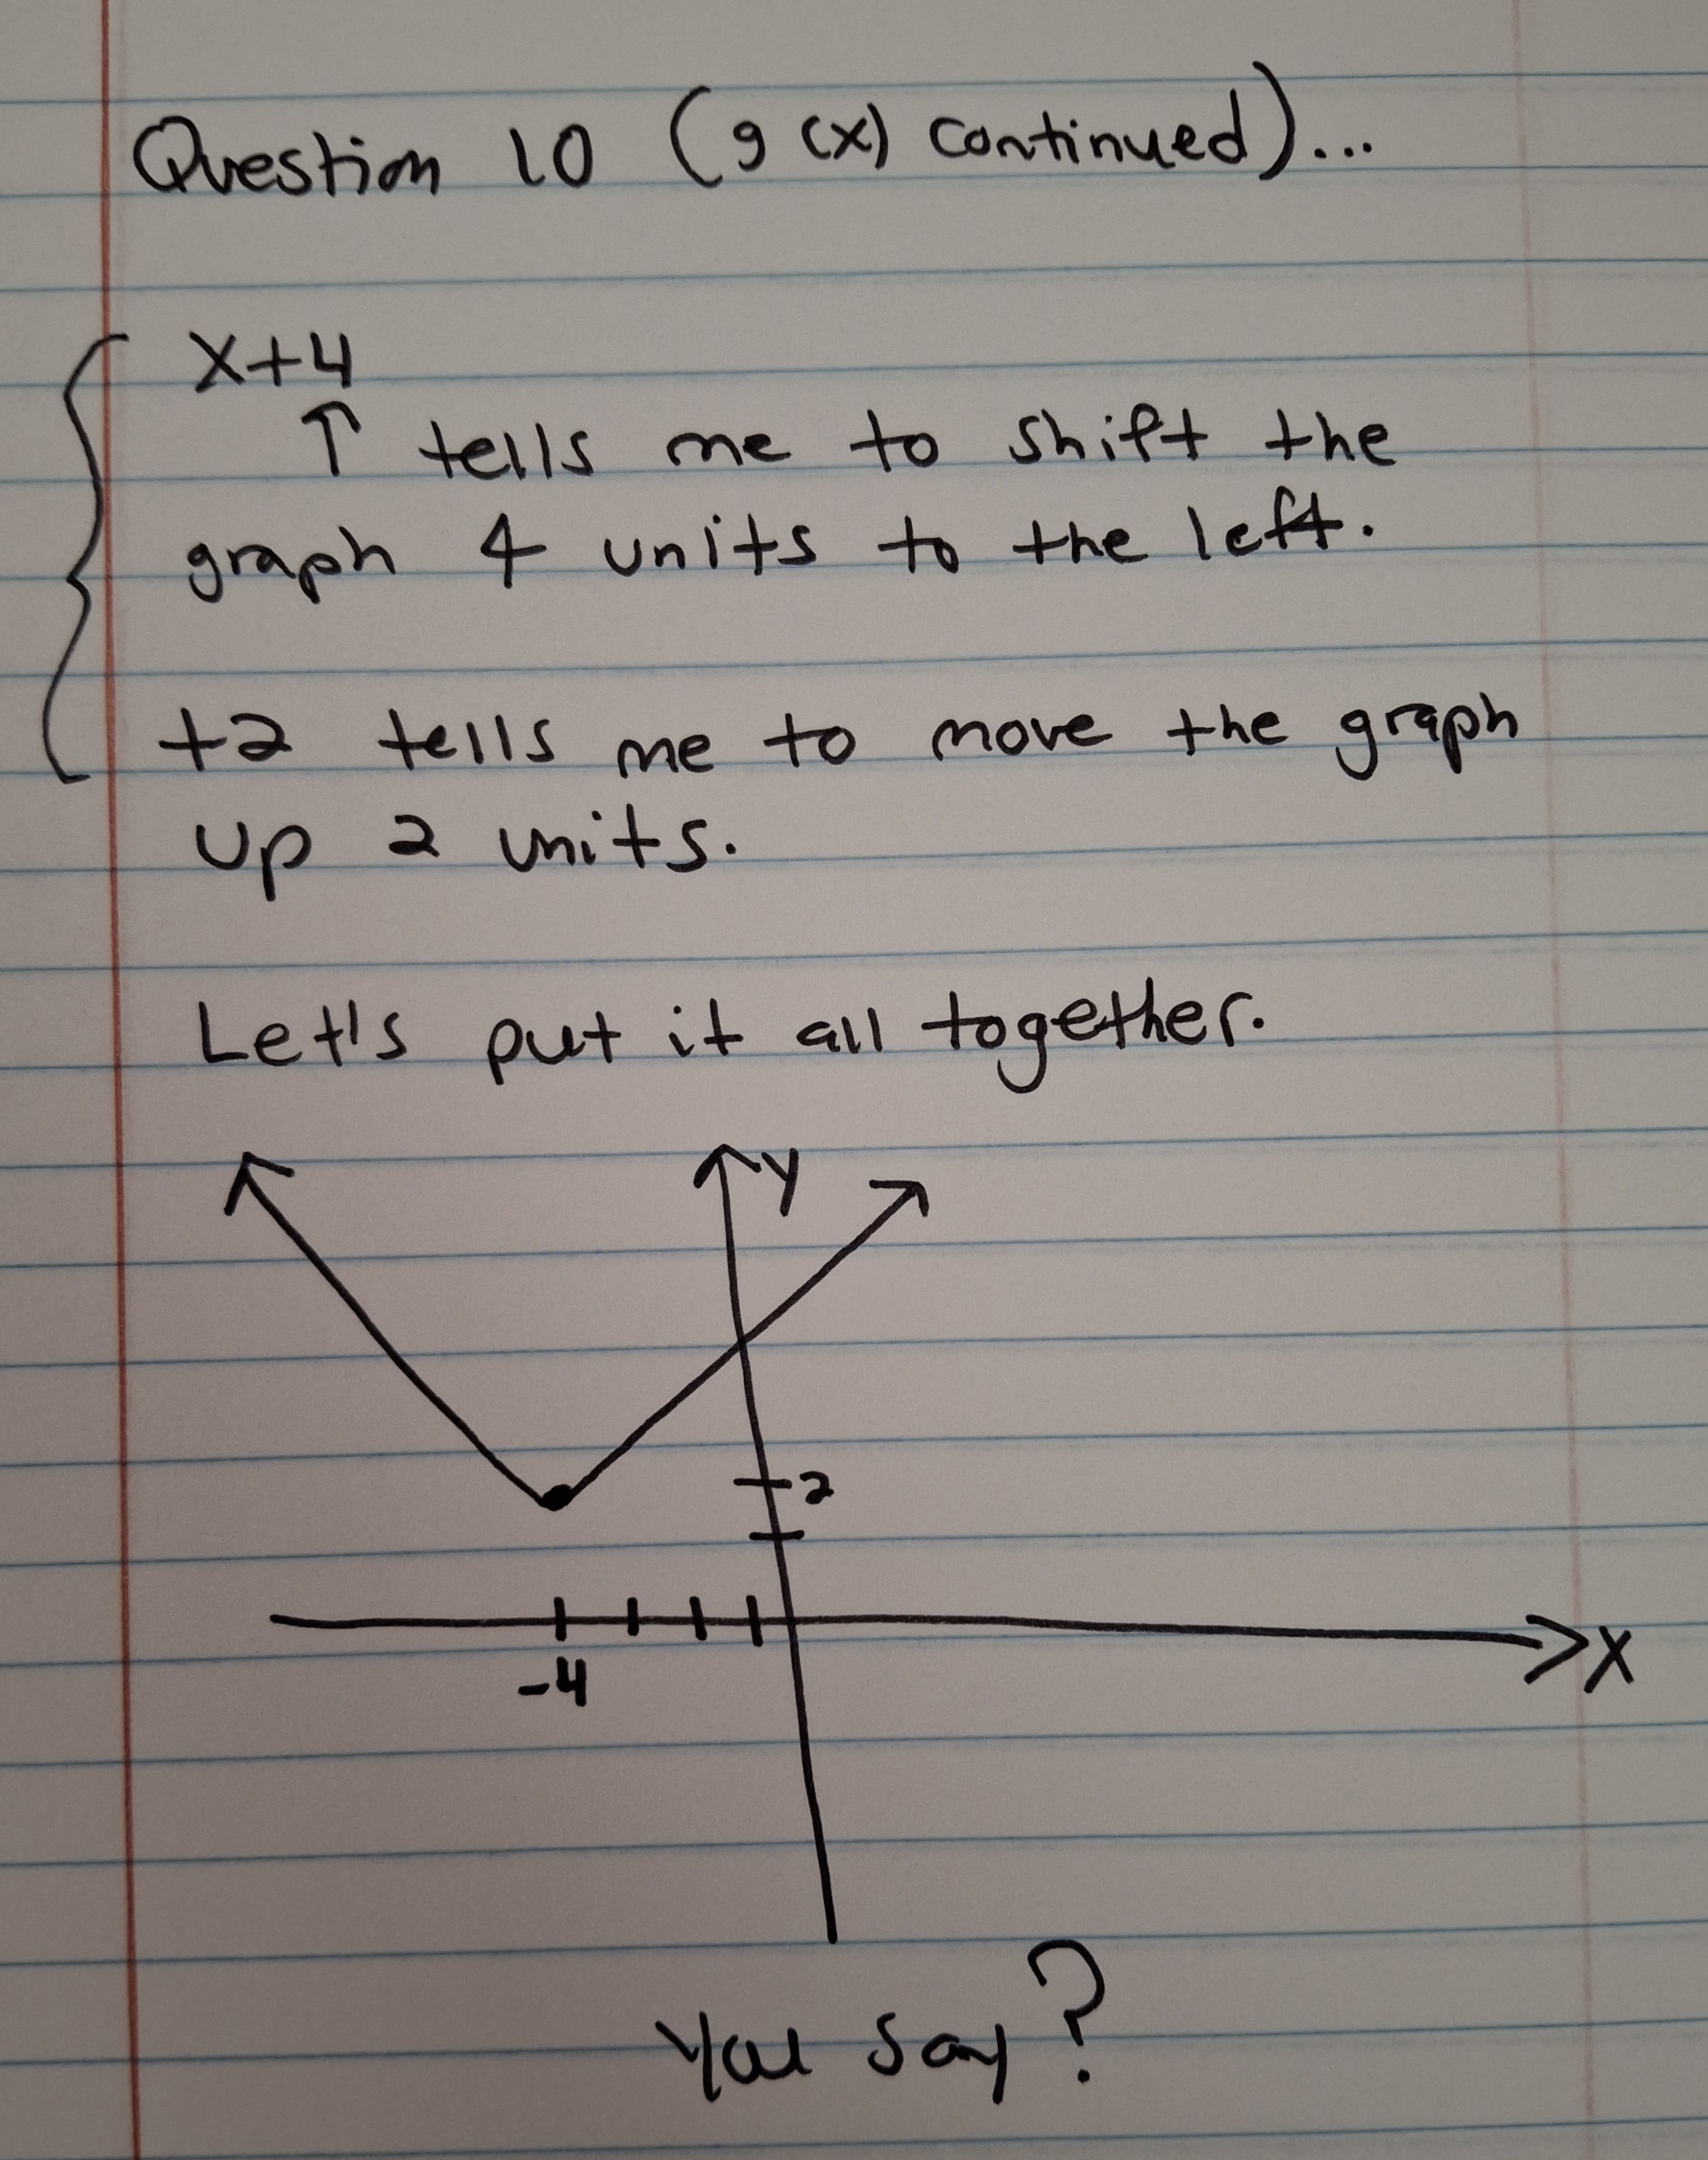 Question 10 (g(x) continued)...
x+4
↑ tells me to shift the
graph 4 units to the left.
+2 tells me to move the graph
up 2 units.
Let's put it all together.
y
2
-4
x
You say?